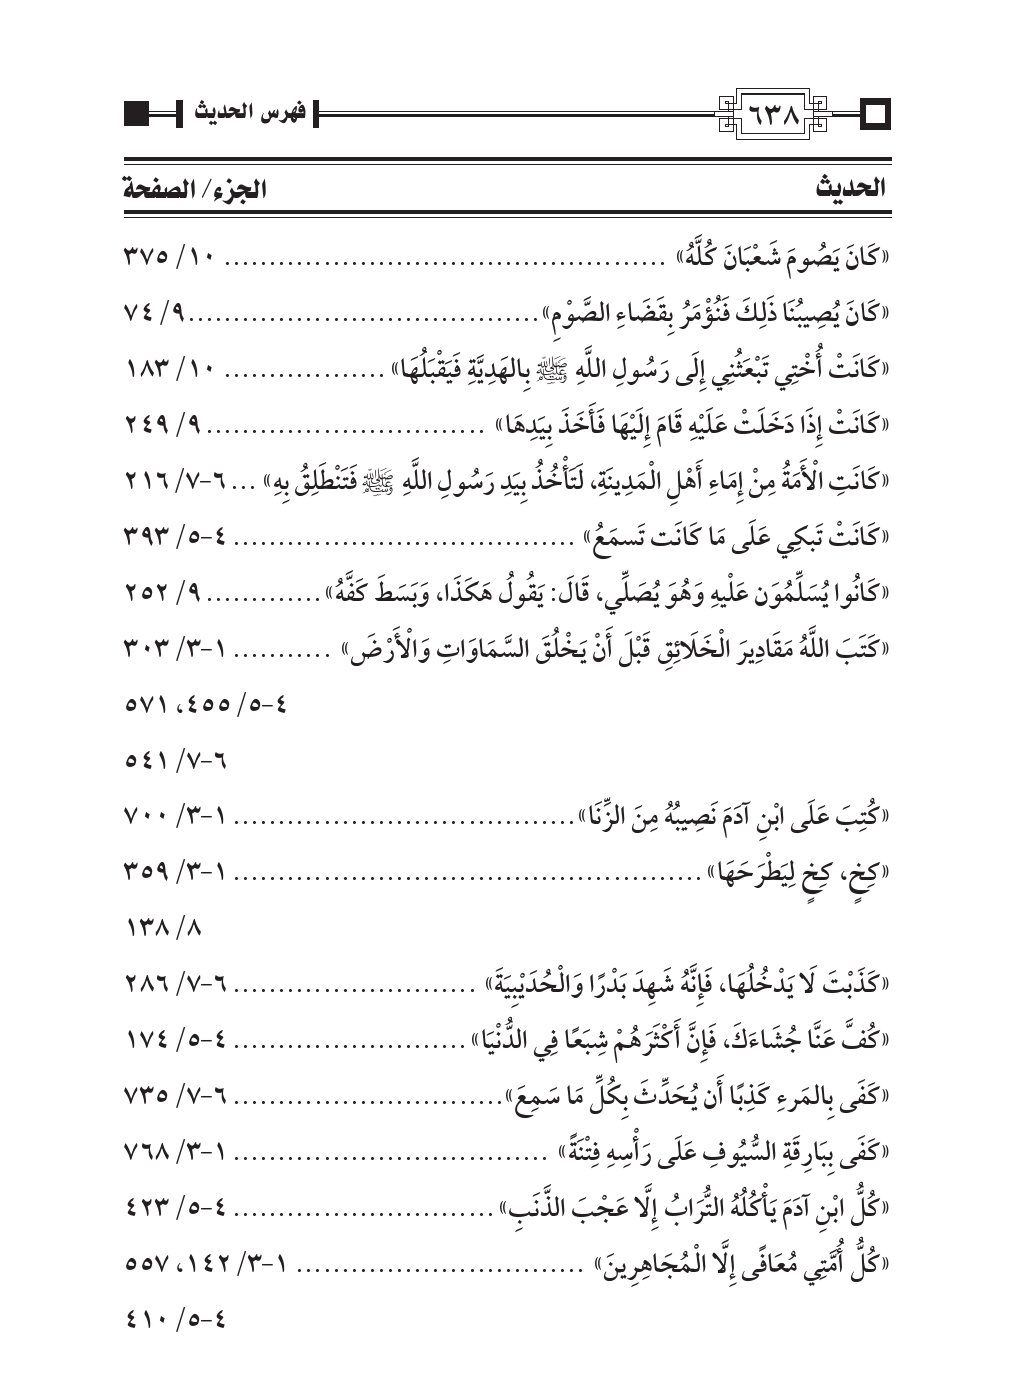 ٦٣٨ فهرس الحديث
الحديث الجزء/ الصفحة
«كَانَ يَصُومَ شَعْبَانَ كُلَّهُ» ................................................ ١٠/ ٣٧٥
«كَانَ يُصِيبُنَا ذَلِكَ فَنُؤْمَرُ بِقَضَاءِ الصَّوْمِ» ...................................... ٩/ ٧٤
«كَانَتْ أُخْتِي تَبْعَثُنِي إِلَى رَسُولِ اللَّهِ ﷺ بِالهَدِيَّةِ فَيَقْبَلُهَا» .................. ١٠/ ١٨٣
«كَانَتْ إِذَا دَخَلَتْ عَلَيْهِ قَامَ إِلَيْهَا فَأَخَذَ بِيَدِهَا» .............................. ٩/ ٢٤٩
«كَانَتِ الْأَمَةُ مِنْ إِمَاءِ أَهْلِ الْمَدِينَةِ، لَتَأْخُذُ بِيَدِ رَسُولِ اللَّهِ ﷺ فَتَنْطَلِقُ بِهِ» ... ٦-٧/ ٢١٦
«كَانَتْ تَبكِي عَلَى مَا كَانَت تَسمَعُ» ..................................... ٤-٥/ ٣٩٣
«كَانُوا يُسَلِّمُوَن عَلْيهِ وَهُوَ يُصَلِّي، قَالَ: يَقُولُ هَكَذَا، وَبَسَطَ كَفَّهُ» ............. ٩/ ٢٥٢
«كَتَبَ اللَّهُ مَقَادِيرَ الْخَلَائِقِ قَبْلَ أَنْ يَخْلُقَ السَّمَاوَاتِ وَالْأَرْضَ» ........... ١-٣/ ٣٠٣
٤-٥/ ٤٥٥، ٥٧١
٦-٧/ ٥٤١
«كُتِبَ عَلَى ابْنِ آدَمَ نَصِيبُهُ مِنَ الزِّنَا» ..................................... ١-٣/ ٧٠٠
«كِخٍ، كِخٍ لِيَطْرَحَهَا» ................................................... ١-٣/ ٣٥٩
٨/ ١٣٨
«كَذَبْتَ لَا يَدْخُلُهَا، فَإِنَّهُ شَهِدَ بَدْرًا وَالْحُدَيْبِيَةَ» .......................... ٦-٧/ ٢٨٦
«كُفَّ عَنَّا جُشَاءَكَ، فَإِنَّ أَكْثَرَهُمْ شِبَعًا فِي الدُّنْيَا» ......................... ٤-٥/ ١٧٤
«كَفَى بِالمَرءِ كَذِبًا أَن يُحَدِّثَ بِكُلِّ مَا سَمِعَ» ............................. ٦-٧/ ٧٣٥
«كَفَى بِبَارِقَةِ السُّيُوفِ عَلَى رَأْسِهِ فِتْنَةً» .................................. ١-٣/ ٧٦٨
«كُلُّ ابْنِ آدَمَ يَأْكُلُهُ التُّرَابُ إِلَّا عَجْبَ الذَّنَبِ» ............................ ٤-٥/ ٤٢٣
«كُلُّ أُمَّتِي مُعَافًى إِلَّا الْمُجَاهِرِينَ» ............................... ١-٣/ ١٤٢، ٥٥٧
٤-٥/ ٤١٠